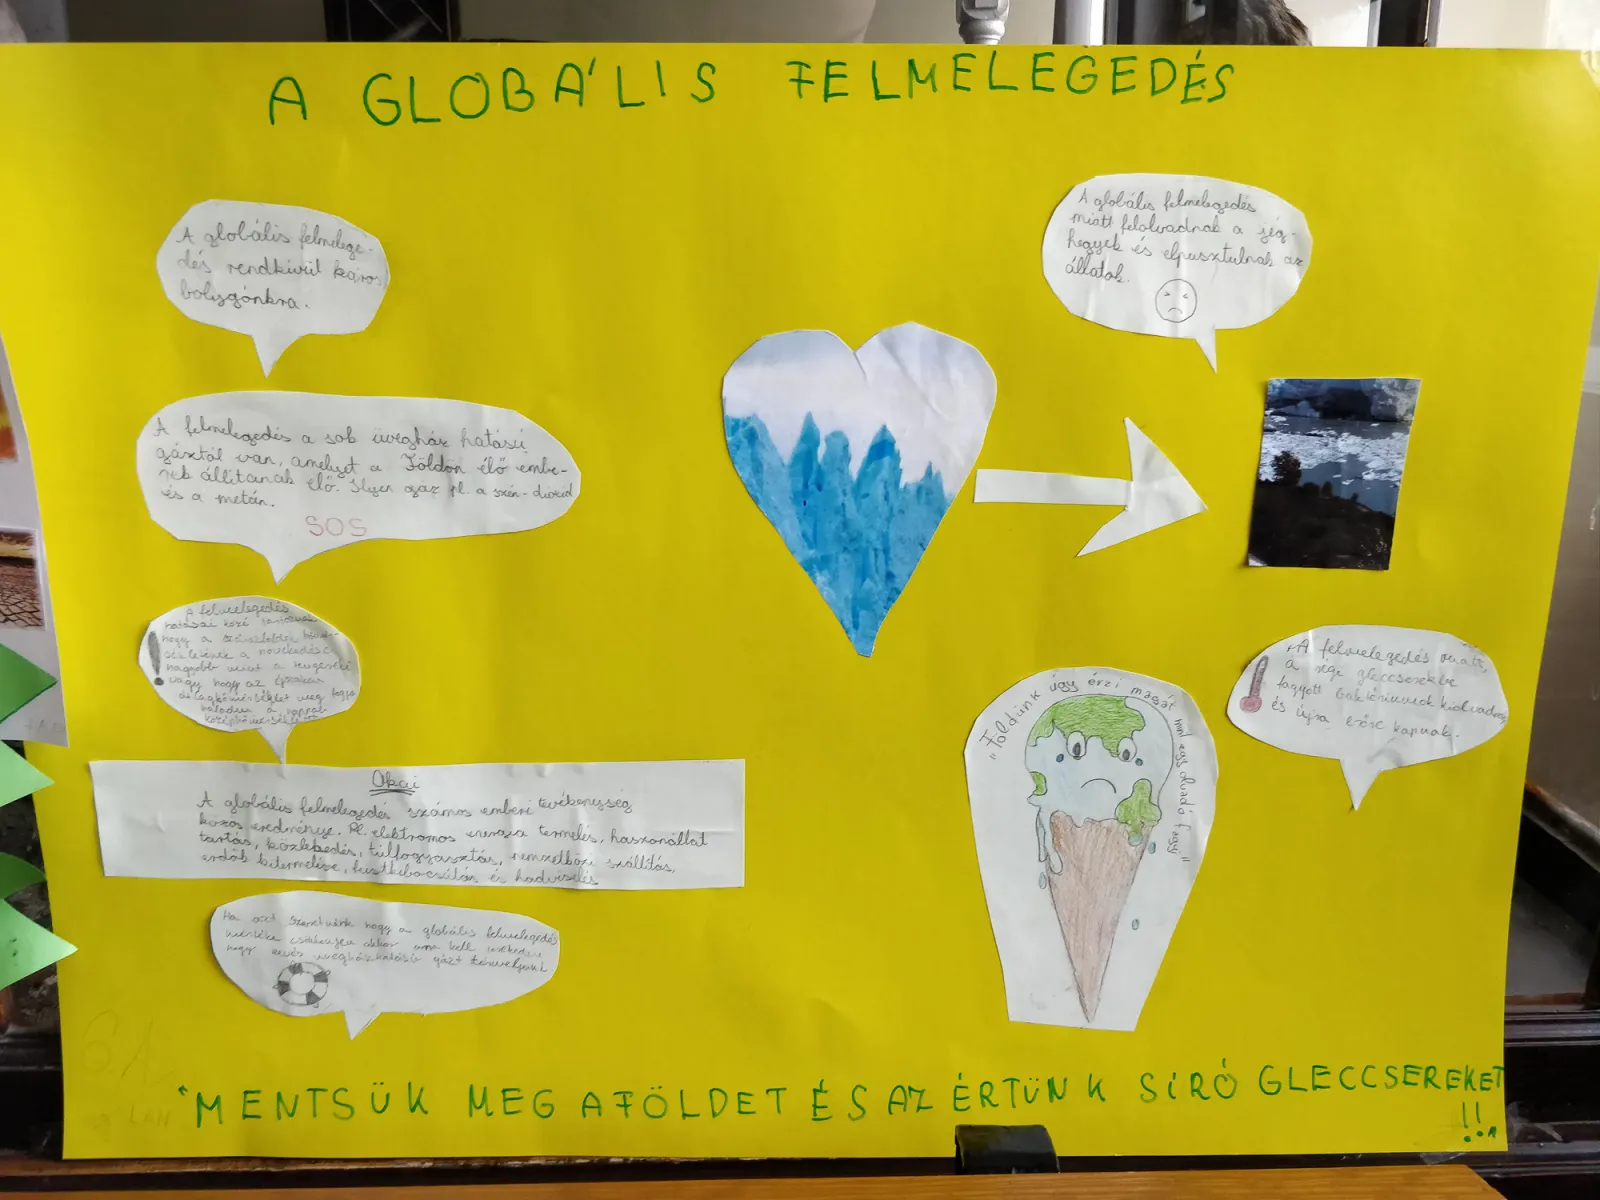 A GLOBÁLIS FELMELEGEDÉS
A globális felmelege-
dés rendkívül káros
bolygónkra.
A felmelegedés a sok üvegház hatású
gáztól van, amelyet a Földön élő embe-
rek állítanak elő. Ilyen gáz pl. a szén-dioxid
és a metán.
SOS
A felmelegedés
hatásai közé tartoznak
hogy a szárazföldek hőmér-
sékletének a növekedése
nagyobb mint a tengereké
vagy hogy az éjszakai
átlaghőmérséklet meg fogja
haladni a nappali
középhőmérsékletét
Okai
A globális felmelegedés számos emberi tevékenység
közös eredménye. Pl. elektromos energia termelés, haszonállat
tartás, közlekedés, túlfogyasztás, nemzetközi szállítás,
erdők kitermelése, füstkibocsútás és hadviselés
Ha azt szeretnénk hogy a globális felmelegedés
mértéke csökkenjen akkor arra kell
hogy kevés üvegházhatású gázt termeljünk.
A globális felmelegedés
miatt felolvadnak a jég-
hegyek és elpusztulnak az
állatok.
A felmelegedés miatt,
a régi gleccserekbe
fagyott baktériumok kiolvadnak
és újra erőre kapnak.
"Földünk úgy érzi magát mint egy olvadó fagyi"
"MENTSÜK MEG A FÖLDET ÉS AZ ÉRTÜNK SÍRÓ GLECCSEREKET
!!"